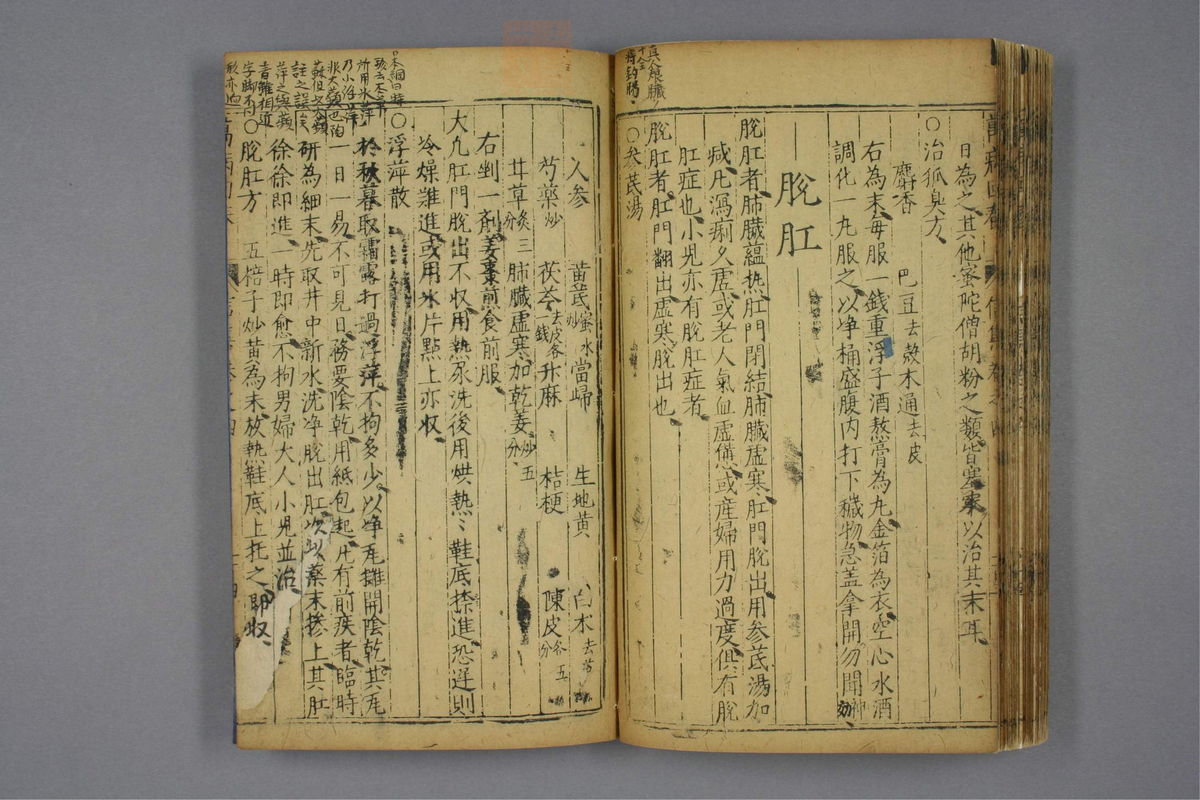 日為之其他蜜陀僧胡粉之類皆塞竅以治其末耳
○治狐臭方
麝香 巴豆去殼 木通去皮
右為末每服一錢重浮子酒熬膏為丸金箔為衣空心水酒
調化一丸服之以净桶盛腹内打下穢物急盖拿開勿聞神効
脫肛
脫肛者肺臟蘊热肛門閉結肺臟虛寒肛門脫出用参芪湯加
减凡瀉痢久虛或老人氣血虛憊或産婦用力過度俱有脫
肛症也小児亦有脫肛症者
脫肛者肛門翻出虛寒脫出也
○参芪湯
人参 黄芪蜜水炒 當歸 生地黄 白术去芦
芍藥炒 茯苓去皮各一錢 升麻 桔梗 陳皮各五分
甘草炙三分 肺臟虛寒加乾姜炒五分
右剉一剤姜棗煎食前服
大凡肛門脫出不収用熱尿洗後用烘熱〻鞋底揉進恐遲則
冷燥難進或用氷片點上亦収
○浮萍散
於秋暮取霜露打過浮萍不拘多少以净瓦攤開陰乾其瓦
一日一易不可見日務要陰乾用紙包起凡有前疾者臨時
研為細末先取井中新水洗净脫出肛次以藥末掺上其肛
徐徐即進一時即愈不拘男婦大人小児並治
○脫肛方 五棓子炒黄為末放热鞋底上托之即収